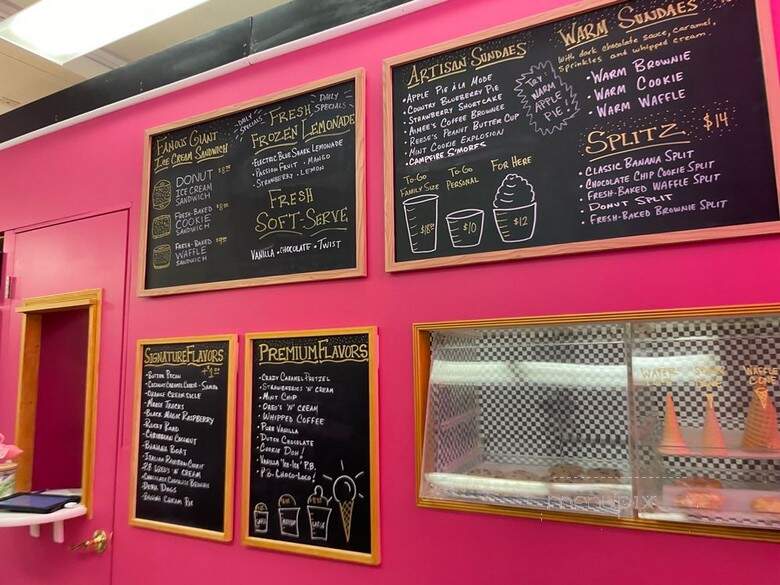 Famous Giant
Ice Cream Sandwich
Donut
Ice Cream
Sandwich
Fresh-Baked
Cookie
Sandwich
Fresh-Baked
Waffle
Sandwich
Daily
Specials
Fresh
Daily
Specials
Frozen Lemonade
Electric Blue Shark Lemonade
Passion Fruit • Mango
Strawberry • Lemon
Fresh
Soft-Serve
Vanilla • Chocolate • Twist
Artisan Sundaes
• Apple Pie à la Mode
• Country Blueberry Pie
• Strawberry Shortcake
• Aimee's Coffee Brownee
• Reese's Peanut Butter Cup
• Mint Cookie Explosion
• Campfire S'mores
Try
Warm
Apple
Pie!
To-Go
Family Size
To-Go
Personal
For Here
$10
$12
Warm Sundaes
With dark chocolate sauce, caramel,
sprinkles and whipped cream.
• Warm Brownie
• Warm Cookie
• Warm Waffle
Splitz $14
• Classic Banana Split
• Chocolate Chip Cookie Split
• Fresh-Baked Waffle Split
• Donut Split
• Fresh-Baked Brownie Split
Signature Flavors
- Button Pecan
- Coconut Caramel Cookie - Samoa
- Orange Creamsicle
- Moose Tracks
- Black Magic Raspberry
- Rocky Road
- Caribbean Coconut
- Banana Boat
- Italian Rainbow Cookie
- Chocolate Chocolate Brownie
- Devil Dogs
Premium Flavors
- Crazy Caramel Pretzel
- Strawberries 'n' Cream
- Mint Chip
- Oreo's 'n' Cream
- Whipped Coffee
- Pure Vanilla
- Dutch Chocolate
- Cookie Doh!
- P.B. Choco-Loco!
Small
Medium
Large
Water
Sugar
Cone
Waffle
Cone
menupix